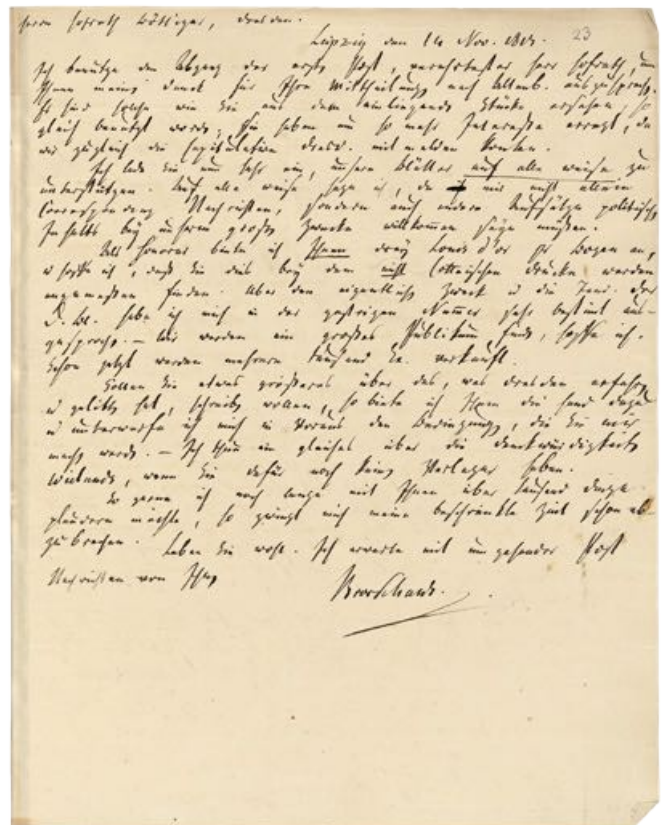 Herrn Hofrath Böttiger, Dresden.
23
Leipzig den 14 Nov. 1813.
Ich benütze den Abgang der ersten Post, verehrtester Herr Hofrath, um
Ihnen meinen Dank für Ihre Mittheilungen nach Altenb. auszusprech.
Es sind solche wie Sie aus dem einliegenden Stücke ersehen, so
gleich benützt worden; Sie haben um so mehr Interesse erregt, da
wir zugleich die Capitulation Dresd. mit melden konten.
Ich lade Sie nun sehr ein, unsere Blätter auf alle weise zu
unterstützen. Auf alle weise sage ich, da mir nicht alleine
Correspondenz Nachrichten, sondern auch andere Aufsätze politisch
Inhalts bey unserm großen Zwecke willkommen seyn müssen.
Als Honorar biete ich Ihnen drey Louis d'or pr Bogen an,
u hoffe ich, daß Sie dies bey dem nicht Cottaischen Drucke werden
angemessen finden. Über den eigentlichen Zweck u die Tend. der
D. Bl. habe ich mich in der gestrigen Numer sehr bestimt aus-
gesprochen. – Wir werden ein großes Publikum finden, hoffe ich.
Schon jetzt werden mehrere tausend Ex. verkauft.
Sollten Sie etwas größeres über das, was Dresden erfahren
u gelitten hat, schreiben wollen, so biete ich Ihnen die Hand dazu
u unterwerfe ich mich in Voraus den Bedingungen, die Sie mir
machen werden. – Ich thue ein gleiches über die Denkwürdigkeiten
Wielands, wenn Sie dafür noch keinen Verleger haben.
So gerne ich noch lange mit Ihnen über tausend Dinge
plaudern möchte, so zwingt mich meine beschränkte Zeit schon ab-
zubrechen. Leben Sie wohl. Ich erwarte mit umgehender Post
Nachrichten von Ihnen
Brockhaus.